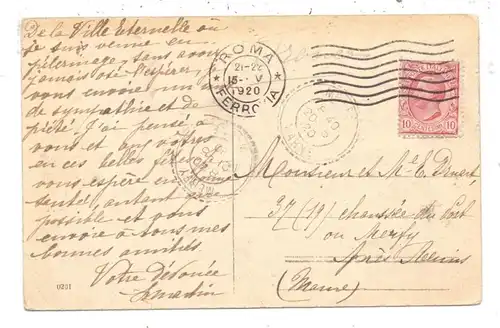 De la Ville Eternelle où
je suis venue en
pèlerinage, sans avoir
jamais osé l'espérer, je
vous envoie un mot
de sympathie et de
piété. J'ai pensé à
vous et aux vôtres
en ces belles fêtes
vous espère en
santé, autant que
possible et vous
envoie à tous mes
bonnes amitiés
Votre dévouée
ROMA
21-22
15 · V
1920
FERROVIA
10 10
Monsieur et Me
37 (19) chaussée du Port
ou Merfy
près Reims
(Marne)
0201